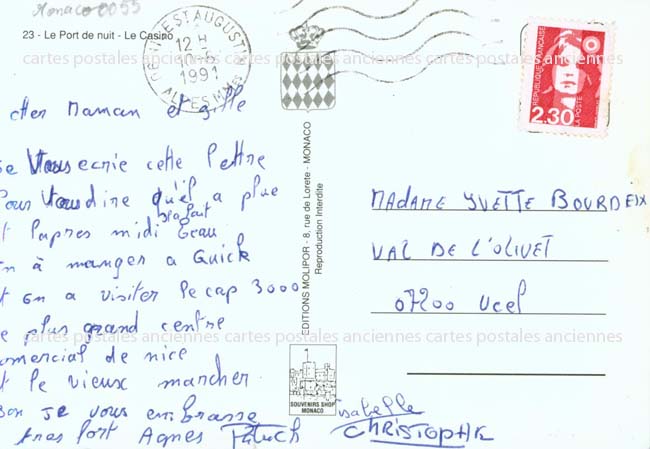 Monaco 0055
23 - Le Port de nuit - Le Casino
12 H
1991
ALPES MMES
cher Maman et gille
Je Vous ecrie cette lettre
Pour Vous dire qu'il a plue
et lapres midi Beau
on à manger a Quick
et on a visiter le cap 3000
le plus grand centre
comercial de nice
et le vieux marcher
Bon je vous embrasse
tres fort Agnes Patrick
isabelle
CHRISTOPHE
EDITIONS MOLIPOR - 8, rue de Lorete - MONACO
Reproduction Interdite
SOUVENIRS SHOP
MONACO
REPUBLIQUE FRANÇAISE
LA POSTE
2.30
MADAME YVETTE BOURDEIX
VAL DE L'OLIVET
07200 Ucel
cartes postales anciennes cartes postales anciennes cartes postales anciennes
cartes postales anciennes cartes postales anciennes cartes postales anciennes